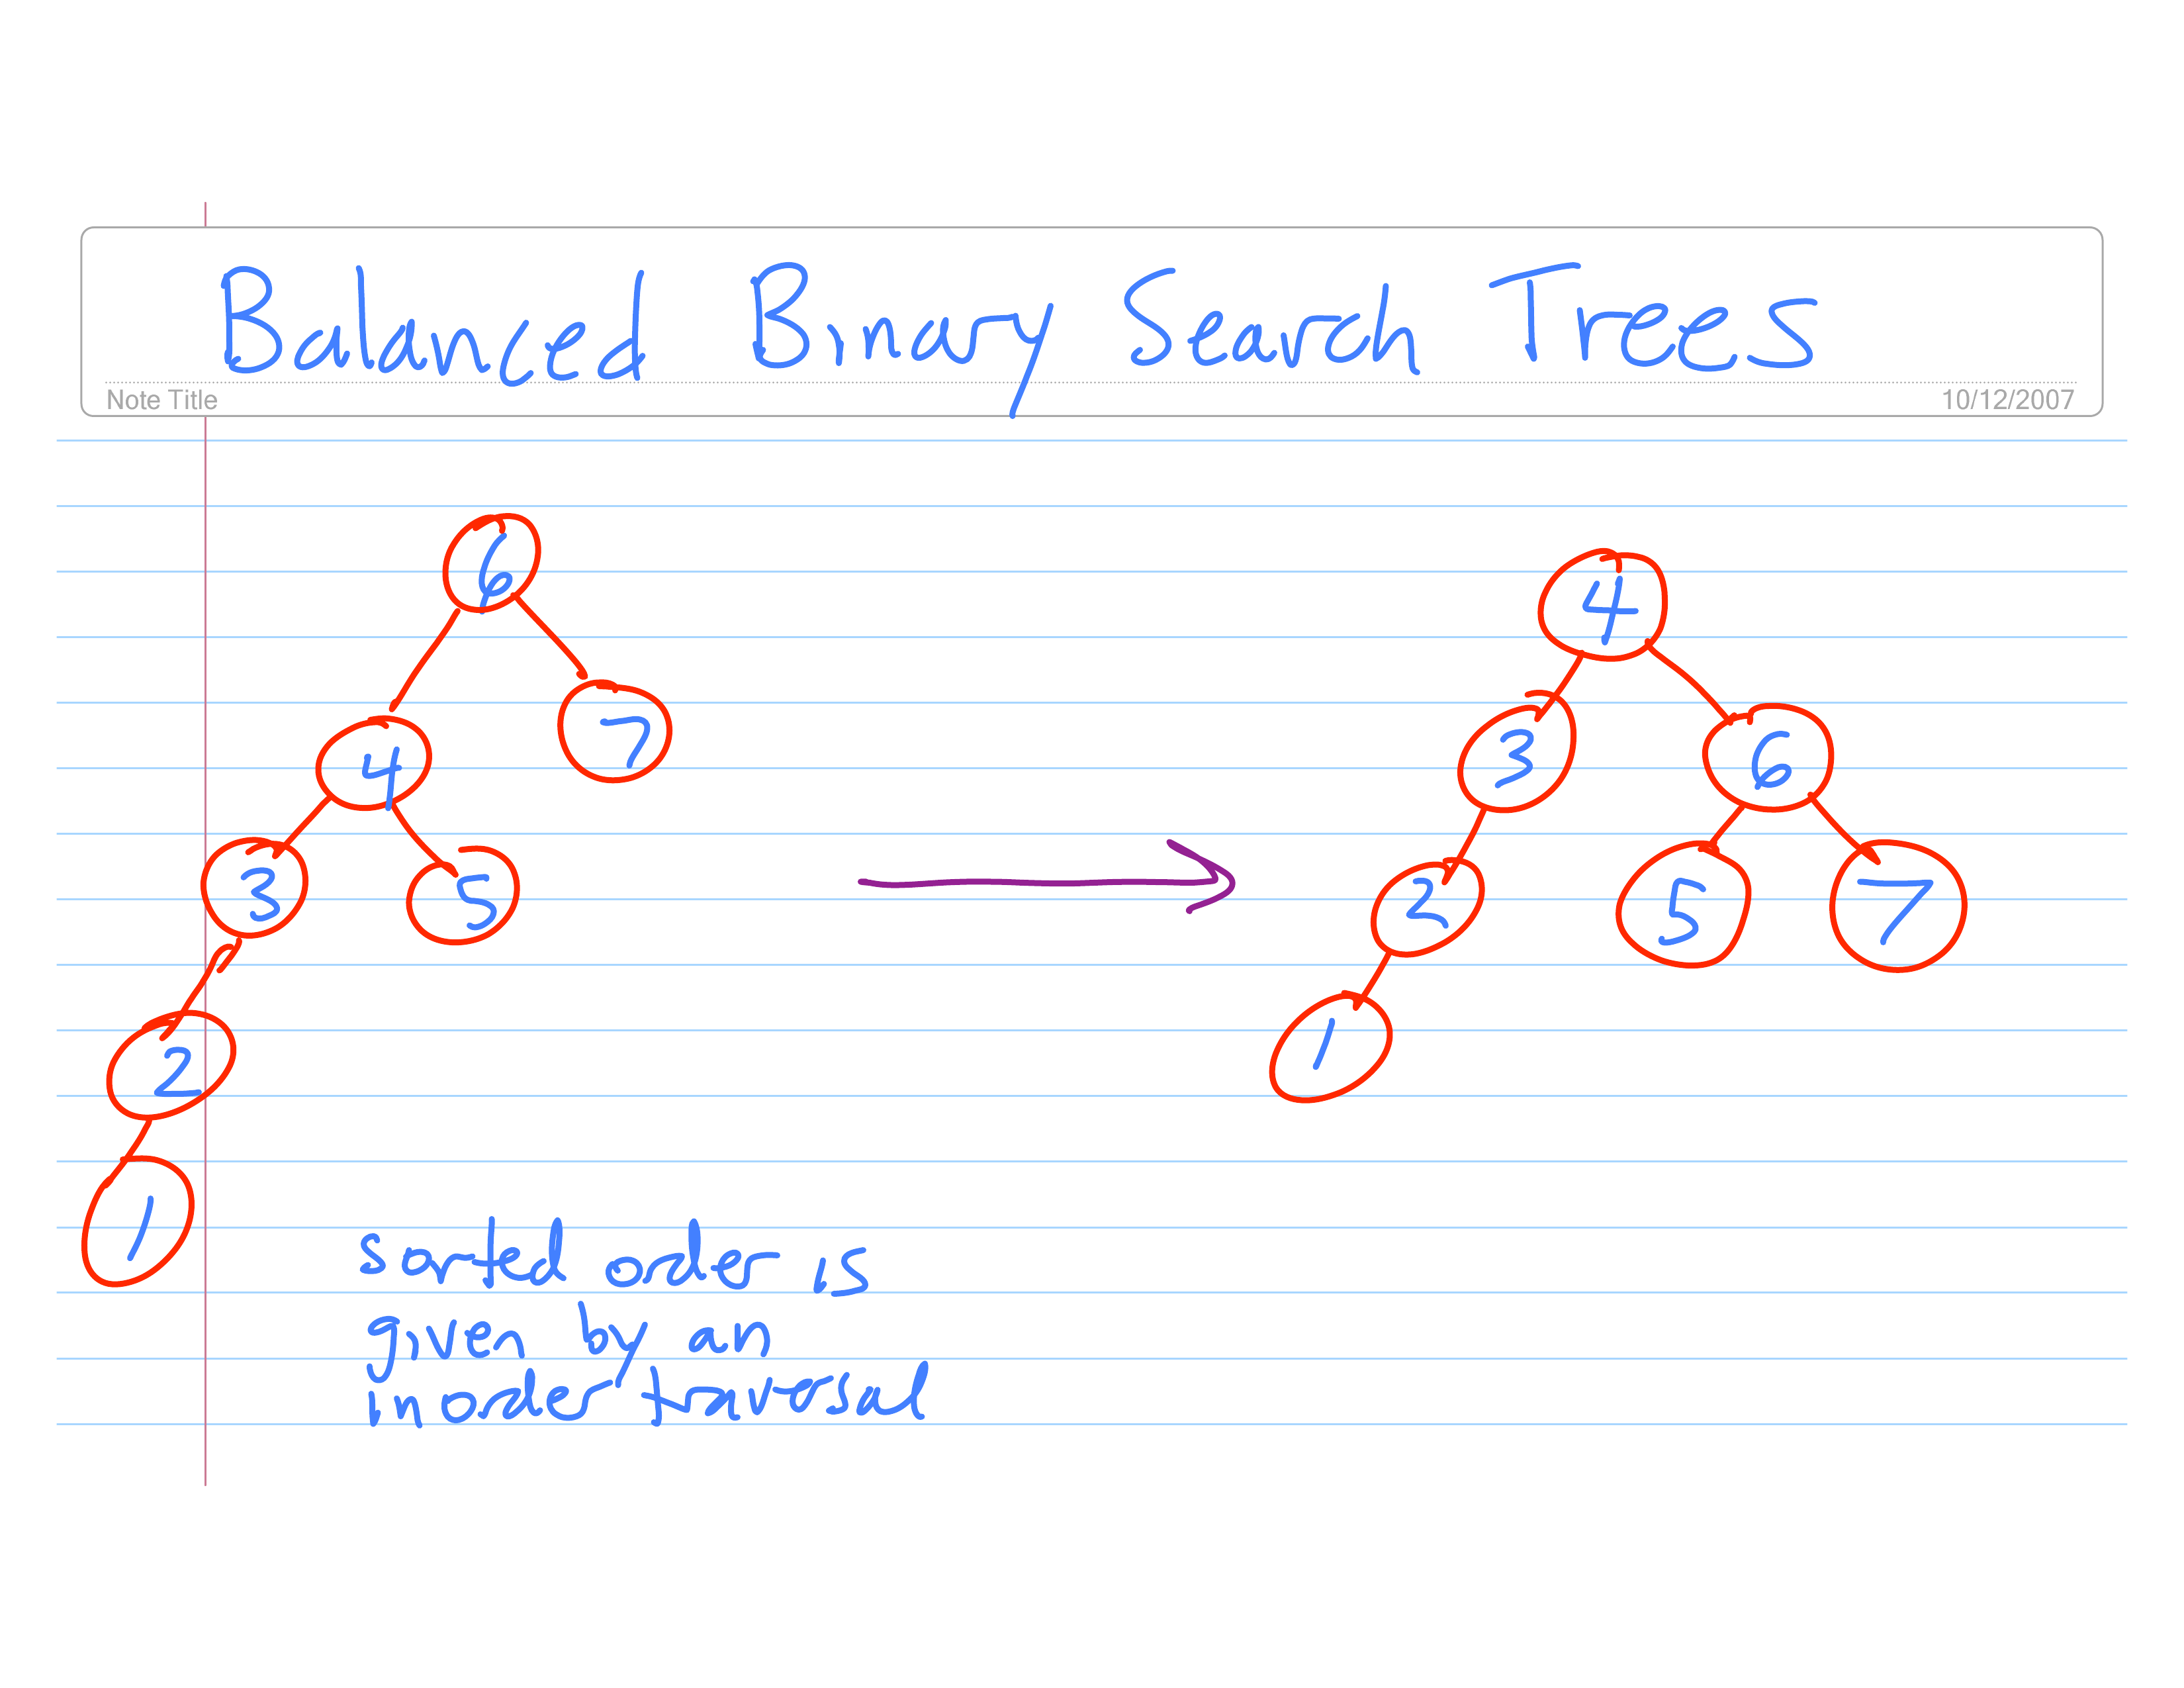 Balanced Binary Search Trees
Note Title 10/12/2007
6
4
4
7
3
6
3
5
2
5
7
2
1
1
sorted order is
given by an
inorder traversal